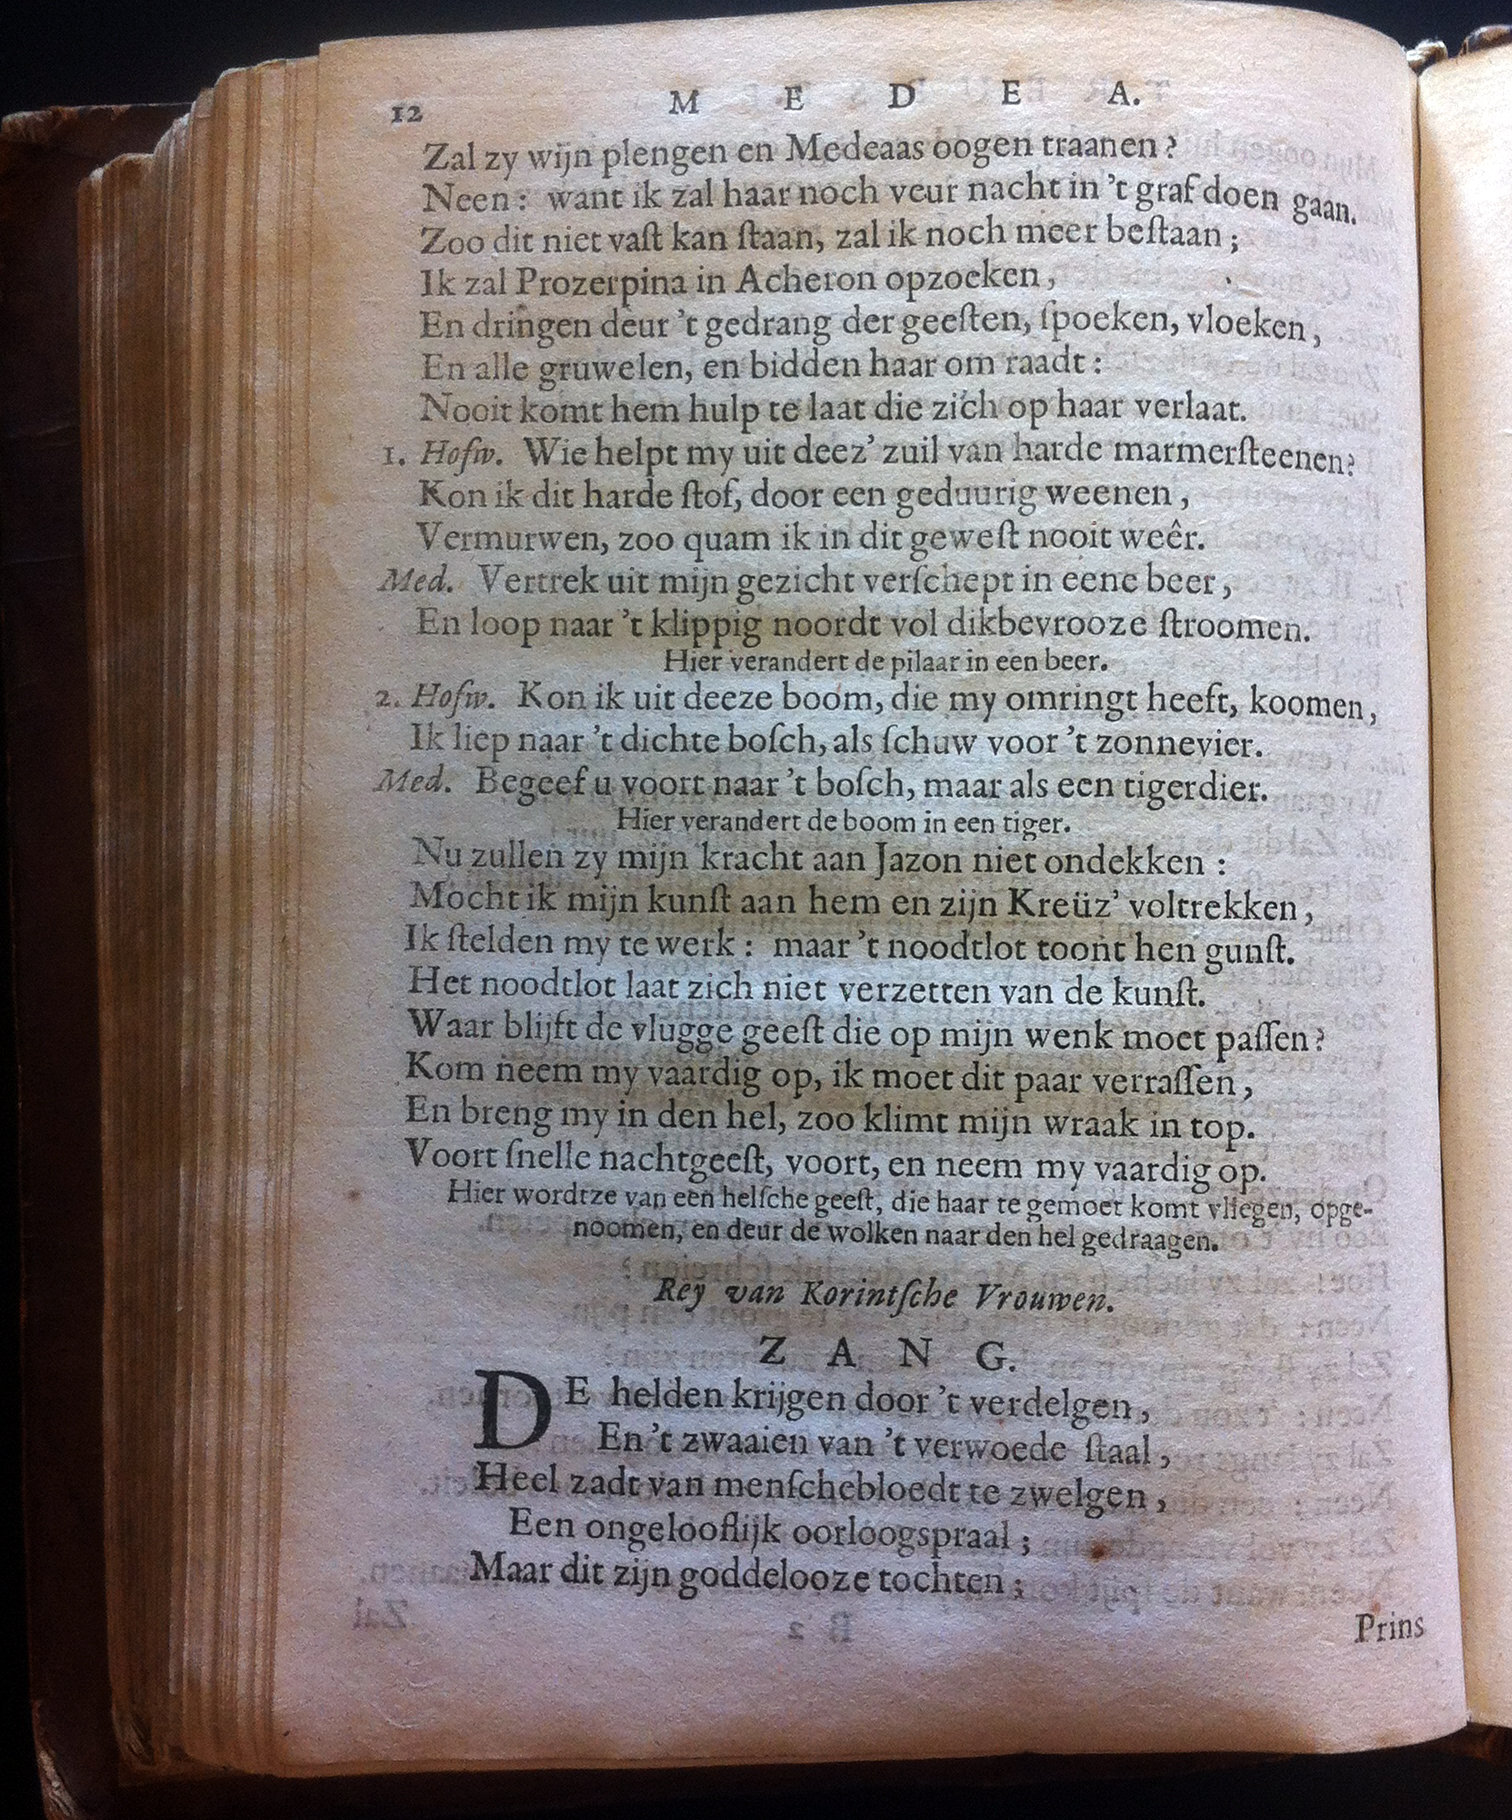 12 M E D E A.
Zal zy wijn plengen en Medeaas oogen traanen?
Neen: want ik zal haar noch veur nacht in 't graf doen gaan.
Zoo dit niet vaſt kan ſtaan, zal ik noch meer beſtaan;
Ik zal Prozerpina in Acheron opzoeken,
En dringen deur 't gedrang der geeſten, ſpoeken, vloeken,
En alle gruwelen, en bidden haar om raadt:
Nooit komt hem hulp te laat die zich op haar verlaat.
1. Hofw. Wie helpt my uit deez' zuil van harde marmerſteenen?
Kon ik dit harde ſtof, door een geduurig weenen,
Vermurwen, zoo quam ik in dit geweſt nooit weêr.
Med. Vertrek uit mijn gezicht verſchept in eene beer,
En loop naar 't klippig noordt vol dikbevrooze ſtroomen.
Hier verandert de pilaar in een beer.
2. Hofw. Kon ik uit deeze boom, die my omringt heeft, koomen,
Ik liep naar 't dichte boſch, als ſchuw voor 't zonnevier.
Med. Begeef u voort naar 't boſch, maar als een tigerdier.
Hier verandert de boom in een tiger.
Nu zullen zy mijn kracht aan Jazon niet ondekken:
Mocht ik mijn kunſt aan hem en zijn Kreüz' voltrekken,
Ik ſtelden my te werk: maar 't noodtlot toont hen gunſt.
Het noodtlot laat zich niet verzetten van de kunſt.
Waar blijft de vlugge geeſt die op mijn wenk moet paſſen?
Kom neem my vaardig op, ik moet dit paar verraſſen,
En breng my in den hel, zoo klimt mijn wraak in top.
Voort ſnelle nachtgeeſt, voort, en neem my vaardig op.
Hier wordtze van een helſche geeſt, die haar te gemoet komt vliegen, opge-
noomen, en deur de wolken naar den hel gedraagen.
Rey van Korintſche Vrouwen.
Z A N G.
DE helden krijgen door 't verdelgen,
En 't zwaaien van 't verwoede ſtaal,
Heel zadt van menſchebloedt te zwelgen,
Een ongelooflijk oorloogspraal;
Maar dit zijn goddelooze tochten;
Prins